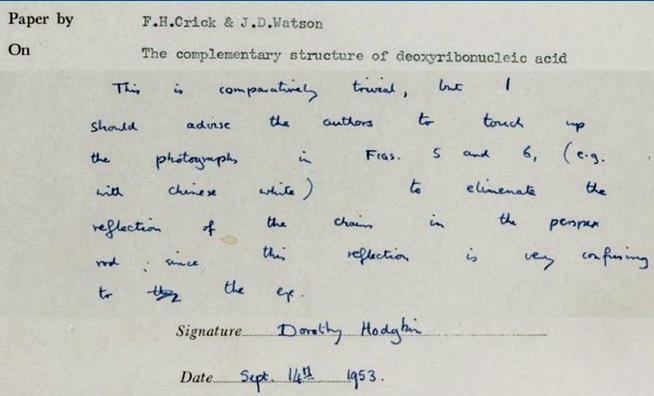 Paper by F.H.Crick & J.D.Watson
On The complementary structure of deoxyribonucleic acid
This is comparatively trivial, but I
should advise the authors to touch up
the photographs in Figs. 5 and 6, (e.g.
with chinese white) to elimenate the
reflection of the chains in the perspex
rod, since this reflection is very confusing
to the the eye.
Signature Dorothy Hodgkin
Date Sept. 14th 1953.